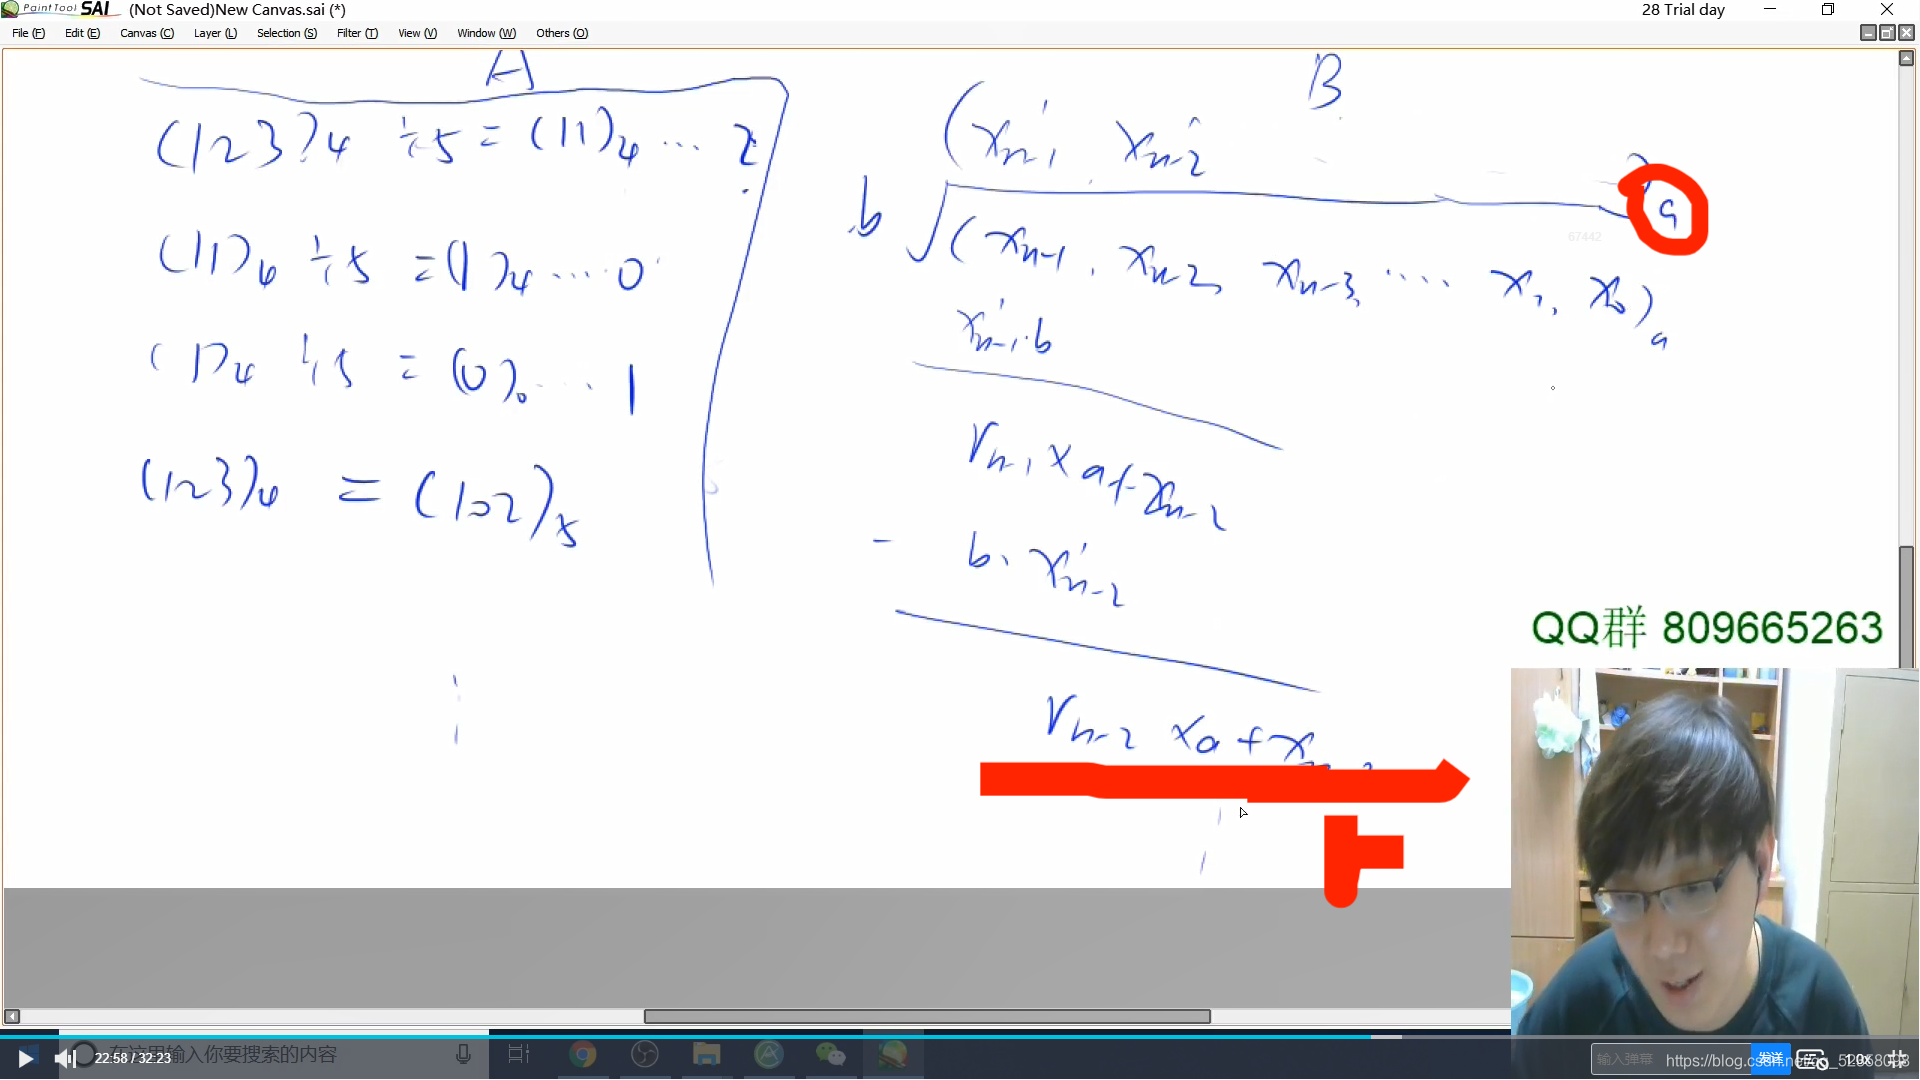 PaintTool SAI (Not Saved)New Canvas.sai (*) 28 Trial day
File (F) Edit (E) Canvas (C) Layer (L) Selection (S) Filter (T) View (V) Window (W) Others (O)
A
(123)₄ ÷5 = (11)₄ ... 2
(11)₄ ÷5 = (1)₄ ... 0
(1)₄ ÷5 = (0)₀ ... 1
(123)₄ = (102)₅
B
(x'ₙ₋₁, x'ₙ₋₂ )ₐ
b √(xₙ₋₁, xₙ₋₂, xₙ₋₃, .... x₁, x₀)ₐ
67442
x'ₙ₋₁·b
rₙ₋₁ × a + xₙ₋₂
- b · x'ₙ₋₂
rₙ₋₂ × a + x
QQ群 809665263
22:58 / 32:23
在这里输入你要搜索的内容
输入弹幕 发送 1.0x